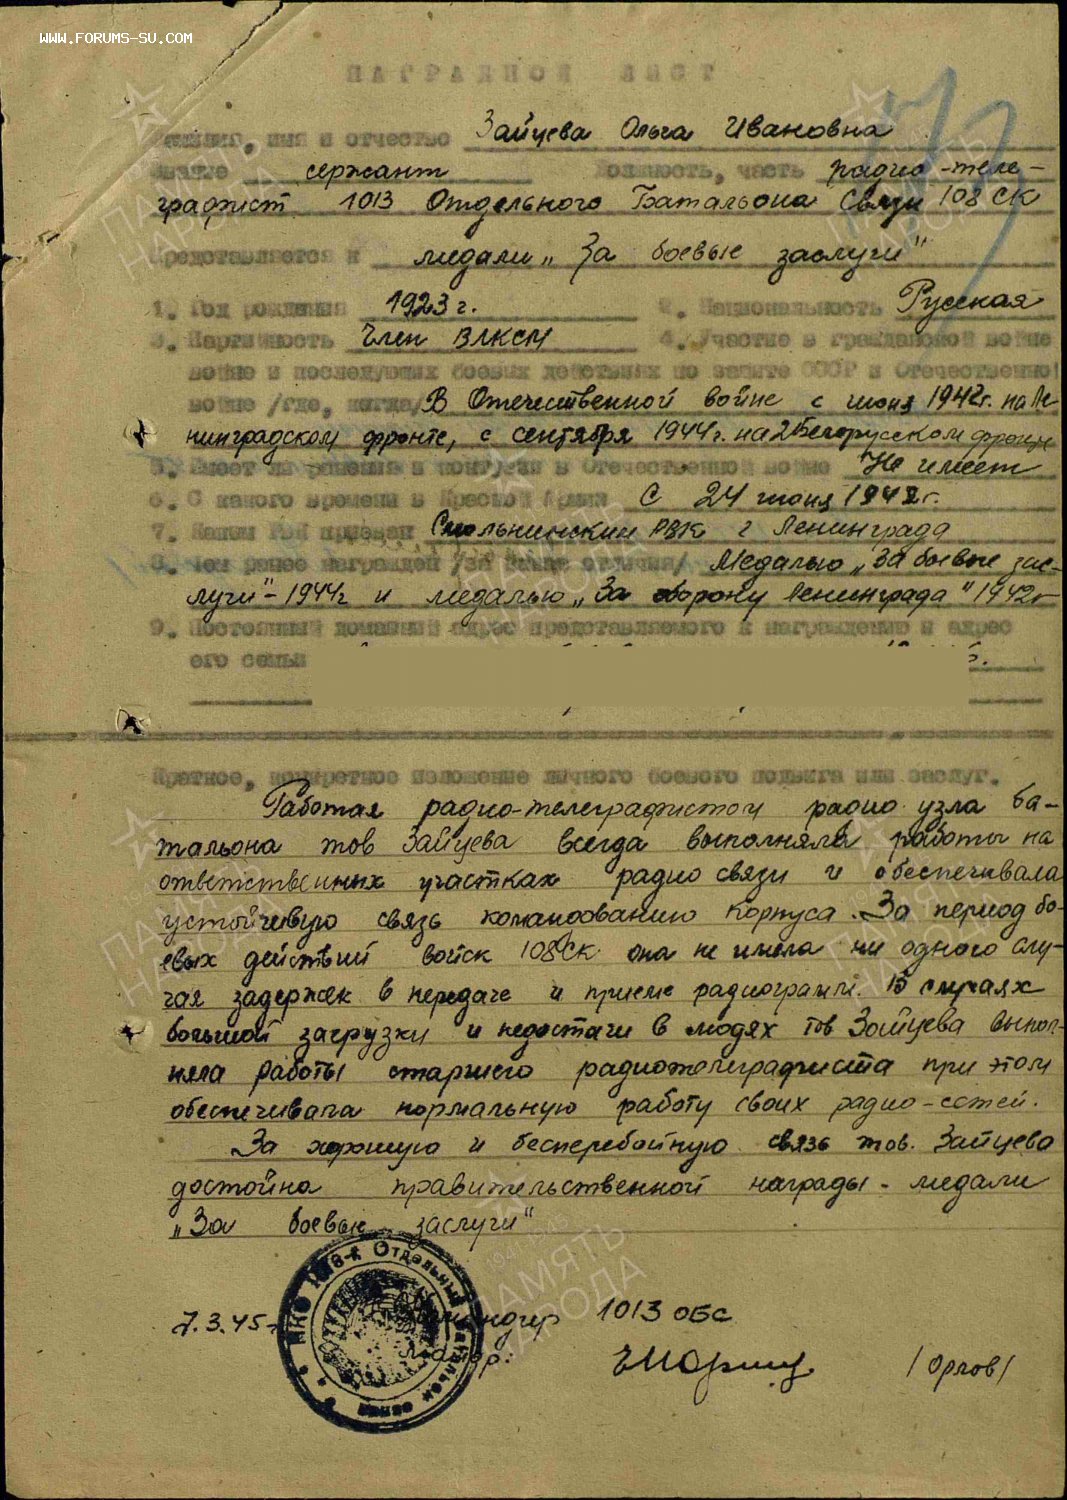 WWW.FORUMS-SU.COM
НАГРАДНОЙ ЛИСТ
Фамилия, имя и отчество Зайцева Ольга Ивановна
Звание сержант Должность, часть радио-теле-
графист 1013 Отдельного Батальона Связи 108 СК
Представляется к медали „За боевые заслуги"
1. Год рождения 1923 г. 2. Национальность Русская
3. Партийность Член ВЛКСМ 4. Участие в гражданской войне
войне и последующих боевых действиях по защите СССР и Отечественной
войне /где, когда/ В Отечественной войне с июня 1942г. на Ле-
нинградском фронте, с сентября 1944г. на 2 Белорусском фронте
5. Имеет ли ранения и контузии в Отечественной войне Не имеет
6. С какого времени в Красной Армии С 24 июня 1942г.
7. Каким РВК призван Смольнинский РВК г Ленинграда
8. Чем ранее награжден /за какие отличия/ Медалью „За боевые зас-
луги" - 1944г и медалью „За оборону Ленинграда" 1942г
9. Постоянный домашний адрес представляемого к награждению и адрес
его семьи
Краткое, конкретное изложение личного боевого подвига или заслуг.
Работая радио-телеграфистом радио узла ба-
тальона тов Зайцева всегда выполняла работы на
ответственных участках радио связи и обеспечивала
устойчивую связь командованию корпуса. За период бо-
евых действий войск 108 СК она не имела ни одного слу-
чая задержек в передаче и приеме радиограмм. В случаях
большой загрузки и недостачи в людях тов Зайцева выпол-
няла работы старшего радиотелеграфиста при этом
обеспечивала нормальную работу своих радио-сетей.
За хорошую и бесперебойную связь тов. Зайцева
достойна правительственной награды - медали
„За боевые заслуги"
7.3.45- Командир 1013 ОБС
Майор: /Орлов/
НКО Отдельный батальон связи
ПАМЯТЬ НАРОДА